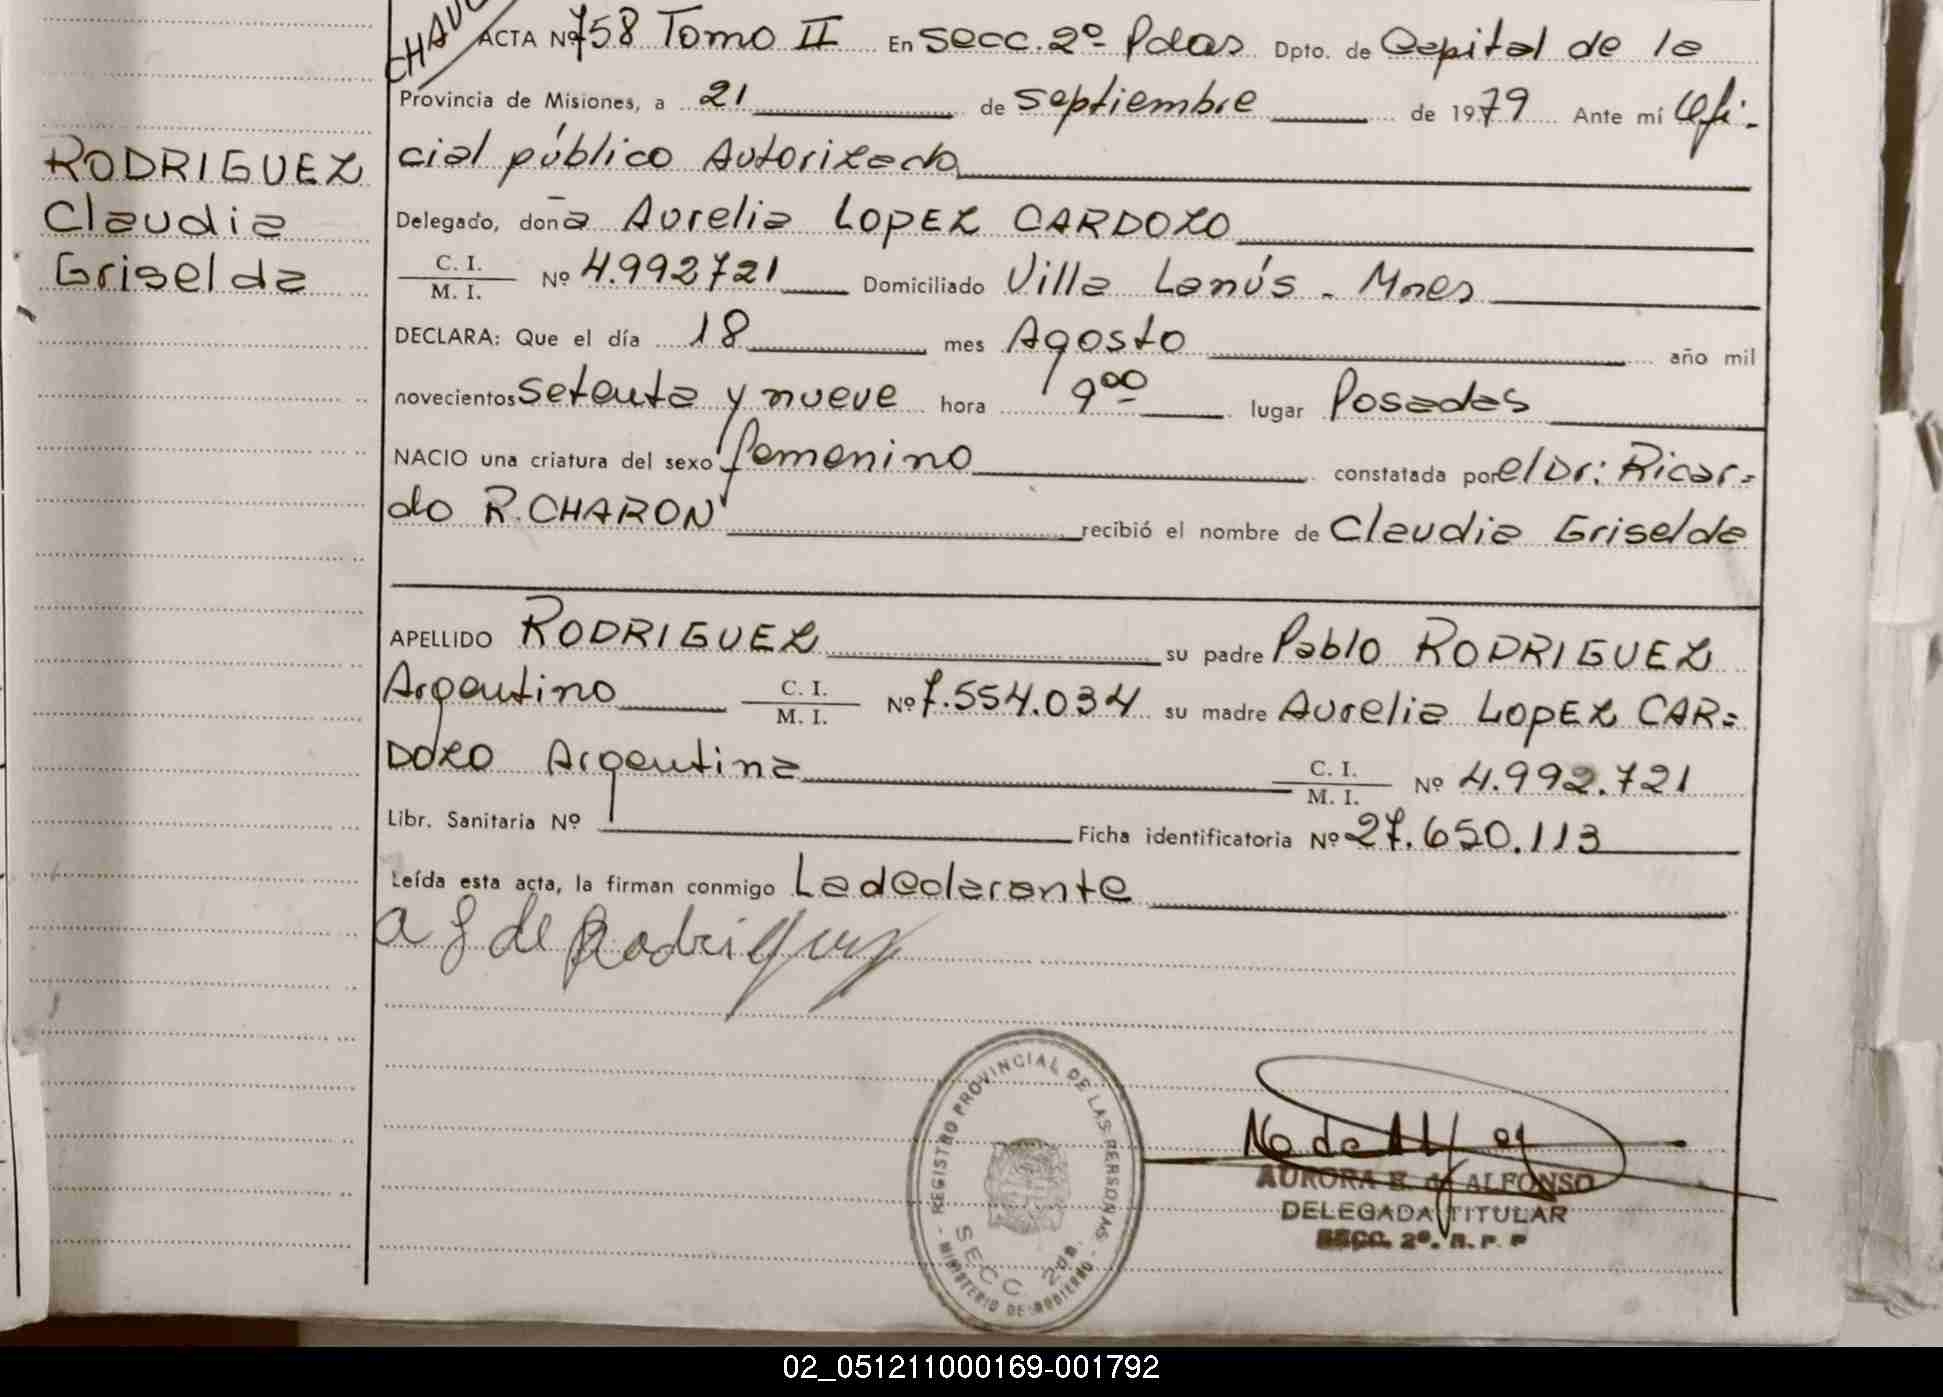 ACTA Nº 758 Tomo II En Secc. 2º Pdas Dpto. de Capital de la
Provincia de Misiones, a 21 de septiembre de 1979 Ante mí Ofi-
cial público Autorizado
Delegado, doña Aurelia LOPEZ CARDOZO
C. I.
M. I. Nº 4.992721 Domiciliado Villa Lanús - Mnes
DECLARA: Que el día 18 mes Agosto año mil
novecientos setenta y nueve hora 9 00 lugar Posadas
NACIO una criatura del sexo femenino constatada por el Dr: Ricar=
do R. CHARON recibió el nombre de Claudia Griselda
RODRIGUEZ
Claudia
Griselda
APELLIDO RODRIGUEZ su padre Pablo RODRIGUEZ
Argentino C. I.
M. I. Nº 7.554.034 su madre Aurelia LOPEZ CAR=
DOZO Argentina C. I.
M. I. Nº 4.992.721
Libr. Sanitaria Nº Ficha identificatoria Nº 27.650.113
Leída esta acta, la firman conmigo La declarante
de Rodriguez
REGISTRO PROVINCIAL DE LAS PERSONAS
SECC 2da.
MINISTERIO DE GOBIERNO
AURORA E. de ALFONSO
DELEGADA TITULAR
SECC. 2º. R. P. P
02_051211000169-001792